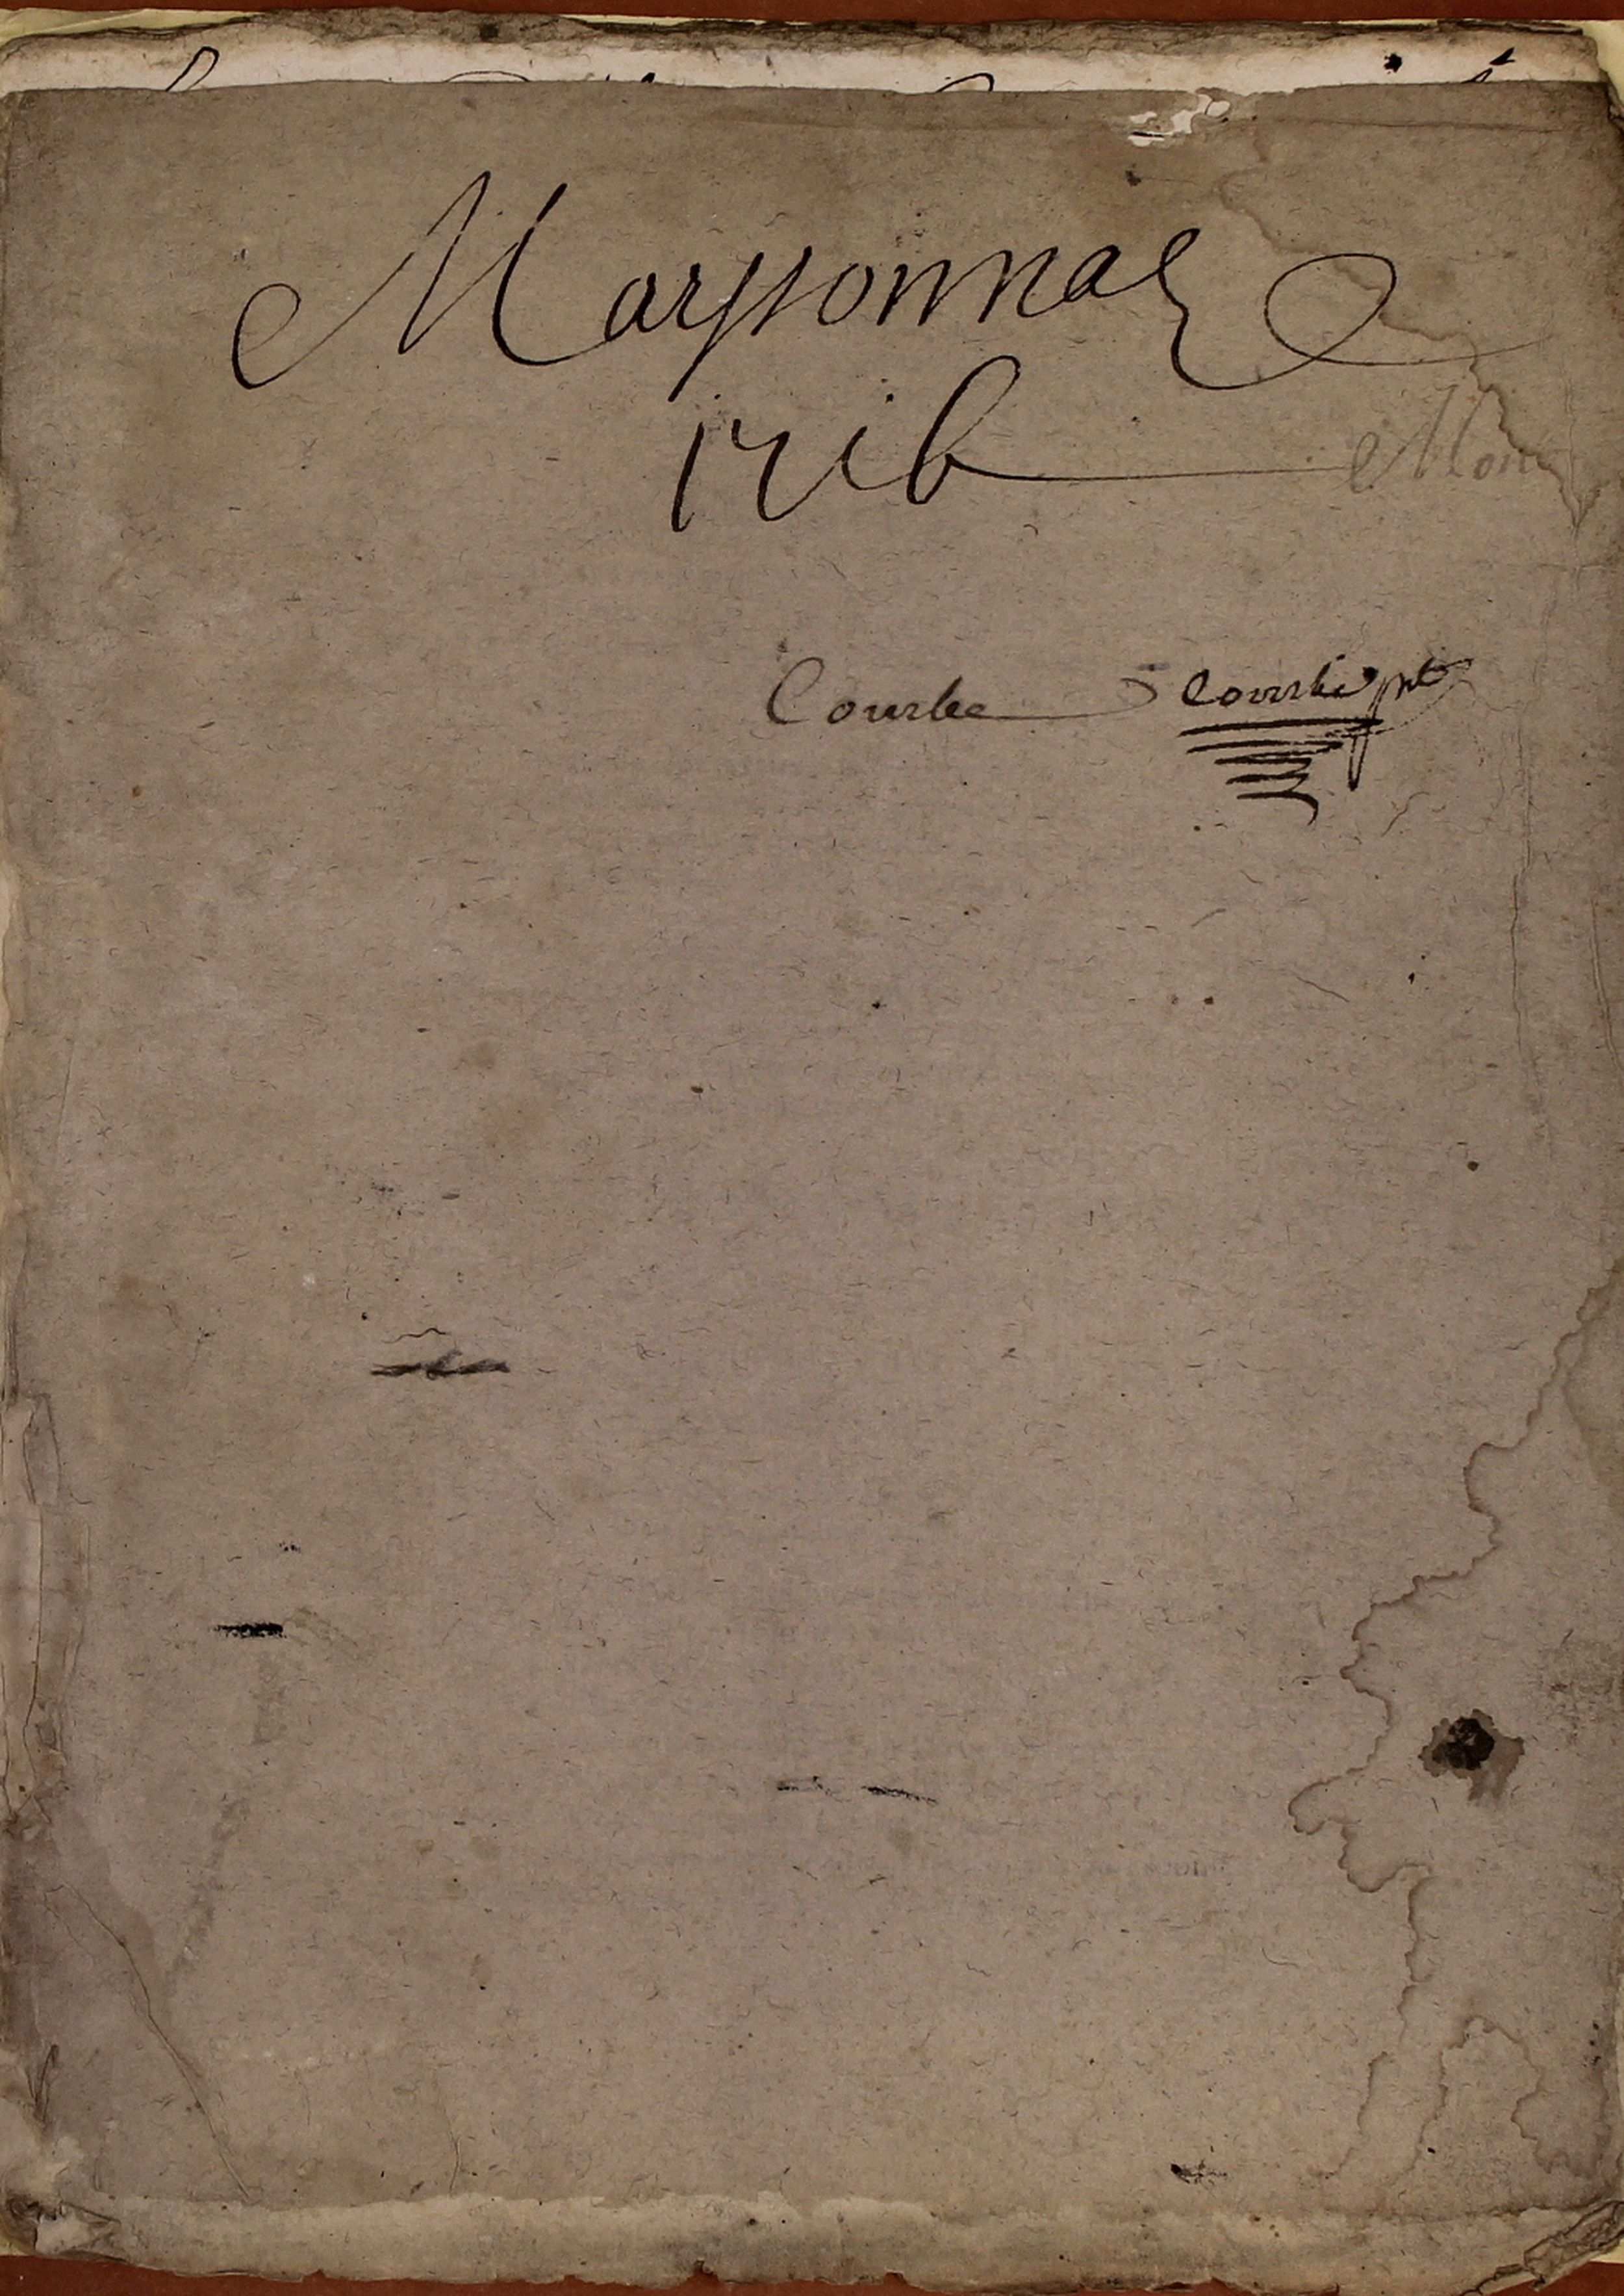 Mayssonnas
1716
Mon
Courbe Courbe